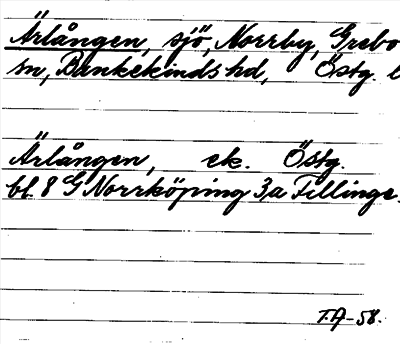 Ärlången, sjö, Norrby, Grebo
sn, Bankekinds hd, Östg. l
Ärlången, ek. Östg.
bl. 8 G Norrköping 3a Fillinge.
T.A-58.